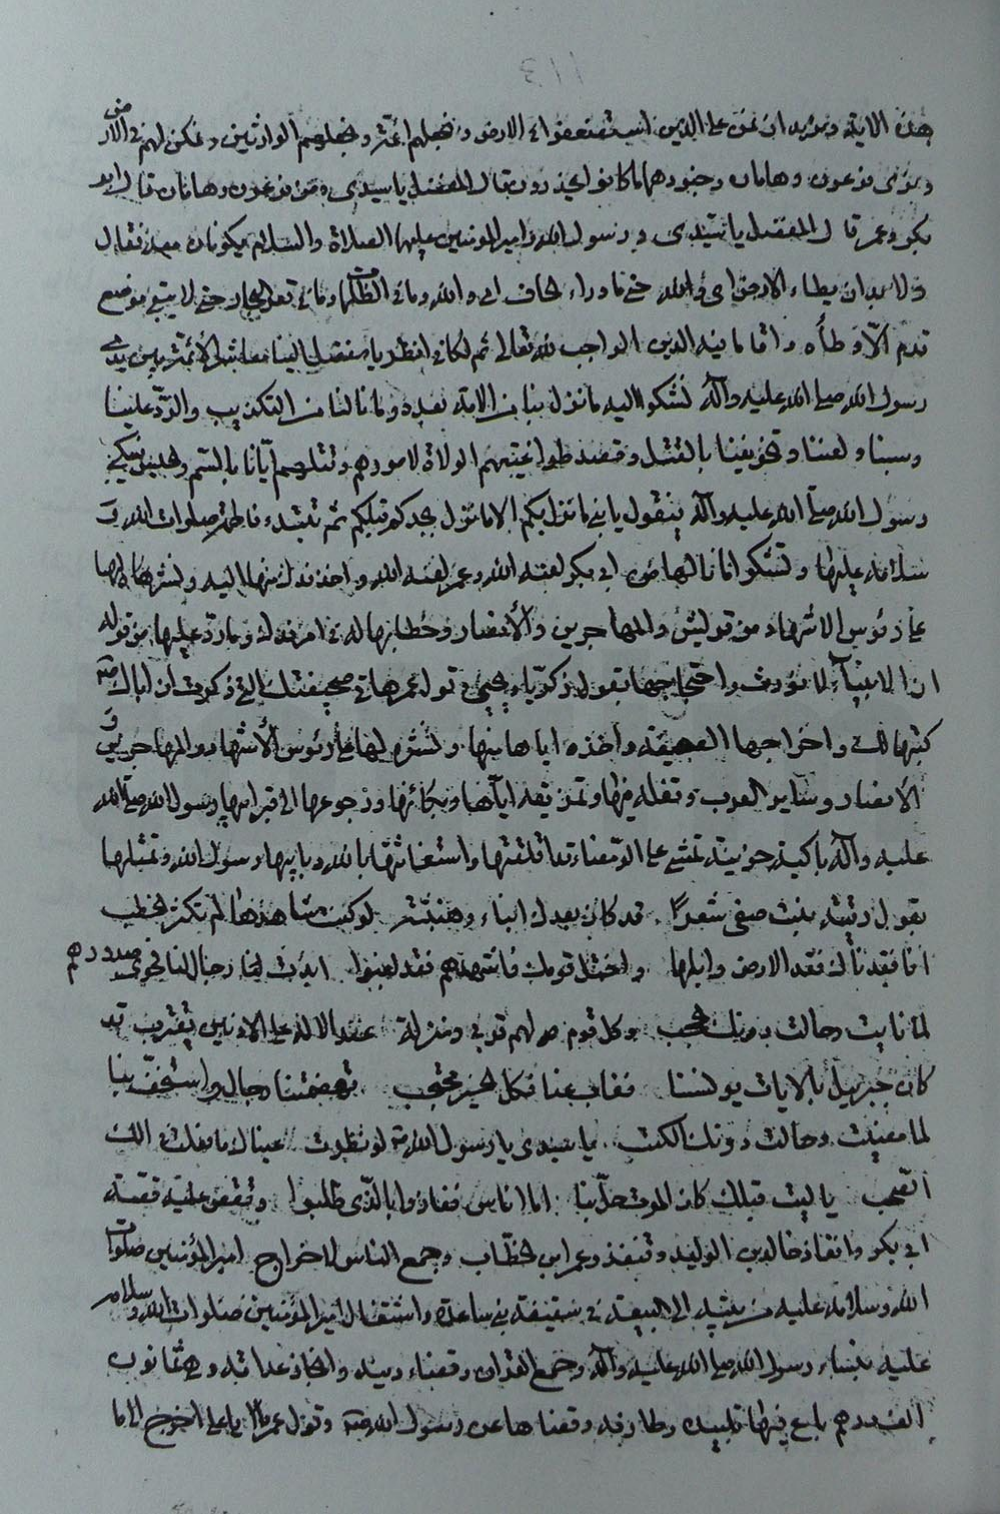 ١١٣
هذه الاية ونريد ان نمن على الذين استضعفوا في الارض ونجعلهم ائمة ونجعلهم الوارثين ونمكن لهم في الارض
ونرى فرعون وهامان وجنودهما ما كانوا يحذرون قال المفضل يا سيدى ومن فرعون وهامان قال ابو
بكر وعمر قال المفضل يا سيدى ورسول الله وامير المومنين عليهما الصلاة والسلام يكونان معه فقال
ولا بد ان يطاء الارض اى والله حتى ما وراء الخاف اى والله وما في الظلمات وما في قعر البحار حتى لا يبقى موضع
قدم الّا وطأه واقاما فيه الدين الواجب لله تعالى ثم لكانى انظر يا مفضل الينا معاشر الأئمة بين يدى
رسول الله صلى الله عليه وآله نشكوا اليه ما نزل بنا من الامة بعده وما نالنا من التكذيب والردّ علينا
وسبنا ولعننا وتخويفنا بالقتل وقصد طواغيتهم الولاة لامورهم وقتلهم ايّانا بالسم والحبس فيبكى
رسول الله صلى الله عليه وآله ويقول يا بنى ما نزل بكم الا ما نزل بجدكم قبلكم ثم تبتدء فاطمة صلوات الله و
سلامه عليها وتشكو ما نالها من ابى بكر لعنه الله وعمر لعنه الله واخذ فدك منها
على رئوس الاشهاد من قريش والمهاجرين والأنصار وخطابها له في امر فدك وما ردّ عليها من قوله
ان الانبيآء لا تورث واحتجاجها بقول زكريّا ويحيى وقول عمر هاتى صحيفتك التى ذكرت أن اباك
كتبها لك واخراجها الصحيفة واخذه اياها منها ونشره لها على رئوس الأشهاد من المهاجرين و
الأنصار وساير العرب وتفله فيها وتمزيقه اياها وبكائها ورجوعها الى قبر ابيها رسول الله صلى الله
عليه وآله باكية حزينة تمشى على الرمضاء قد اقلقتها واستغاثتها بالله وبابيها رسول الله وتمثلها
بقول رقية بنت صفى شعرًا قد كان بعدك انباء وهنبثة لو كنت شاهدها لم تكثر الخطب
انا فقدناك فقد الارض وابلها واختل قومك فاشهدهم فقد لعبوا ابدت لنا رجال لنا فحوى صدورهم
لما نايت وحالت دونك الحجب وكل قوم لهم قربى ومنزلة عند الاله على الادنين يقترب قد
كان جبريل بالايات يونسنا فغاب عنا فكل الخير محتجب تهضمتنا رجال واستخفّ بنا
لما مضيت وحالت دونك الكتب يا سيدى يا رسول الله لو نظرت عيناك ما فعلت في الك
الصحب يا ليت قبلك كان الموت حلّ بنا اما اناس ففازوا بالذى طلبوا وتقص عليه قصة
ابى بكر وانفاذ خالد بن الوليد وقنفذ وعمر ابن الخطّاب وجمع الناس لاخراج امير المؤمنين صلوات
الله وسلامه عليه من بيته الى البيعة في سقيفة بنى ساعدة واشتغال امير المؤمنين صلوات الله وسلامه
عليه بنساء رسول الله صلى الله عليه وآله وجمع القران وقضاء دينه وانجاز عداته وهى ثمانون
الف درهم باع فيها تليده وطارفه وقضاها عن رسول الله وقول عمر يا على اخرج الى ما